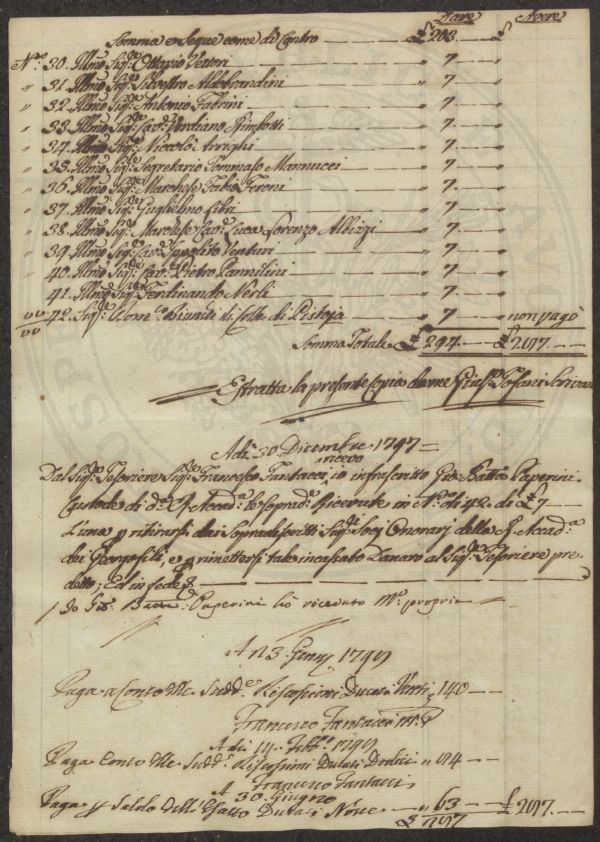 Dare Avere
Somma e Segue come di Contro £ 203. £
N.º 30. Illmo Sig.e Ottavio
" 31. Illmo Sig.e Silvestro Aldobrandini " 7. "
" 32. Illmo Sig.e Antonio Fabrini " 7. "
" 33. Illmo Sig.e Cav.e Verdiano Rimbotti " 7. "
" 34. Illmo Sig.e Niccolò Arrighi " 7. "
" 35. Illmo Sig.e Segretario Tommaso Mannucci " 7. "
" 36. Illmo Sig.e Marchese Fabio Feroni " 7. "
" 37. Illmo Sig.e Guglielmo Libri " 7. "
" 38. Illmo Sig.e Marchese Cav.e Luca Lorenzo Albizzi " 7. "
" 39. Illmo Sig.e Cav.e Ippolito Venturi " 7. "
" 40. Illmo Sig.e Cav.e Pietro Pannilini " 7. "
" 41. Illmo Sig.e Ferdinando Nerli " 7. "
" 42. Sig.e Dom.co di Pistoja " 7 " non pagò
Somma Totale £ 294. £
Estratta la presente Copia da me Gius.e Tofani Scrivan
Adì 30 Dicembre 1797 =
ricevo
Dal Sig.e Tesoriere Sig.e Francesco Fantacci io infrascritto Gio: Batta Paperini
Custode di d.a R. Accad.a le soprad.e Ricevute in N.º di 42. di £ 7
l'una p ritirarsi dai Sopradescritti Sig.i Socj Onorarj della R. Accad.a
dei Georgofili, e p rimettersi tale incassato Danaro al Sig.e Tesoriere pre-
detto; Ed in fede
Io Gio: Batta Paperini hò ricevuto M.o propria
A dì 3. Genn.
Paga a Conto Ducati Venti " 140
Francesco Fantacci
A dì 14. Febb.o
Paga Conto Ducati Dodici " 84
Francesco Fantacci
A 30. Giugno
Paga p Saldo Ducati Nove " 63